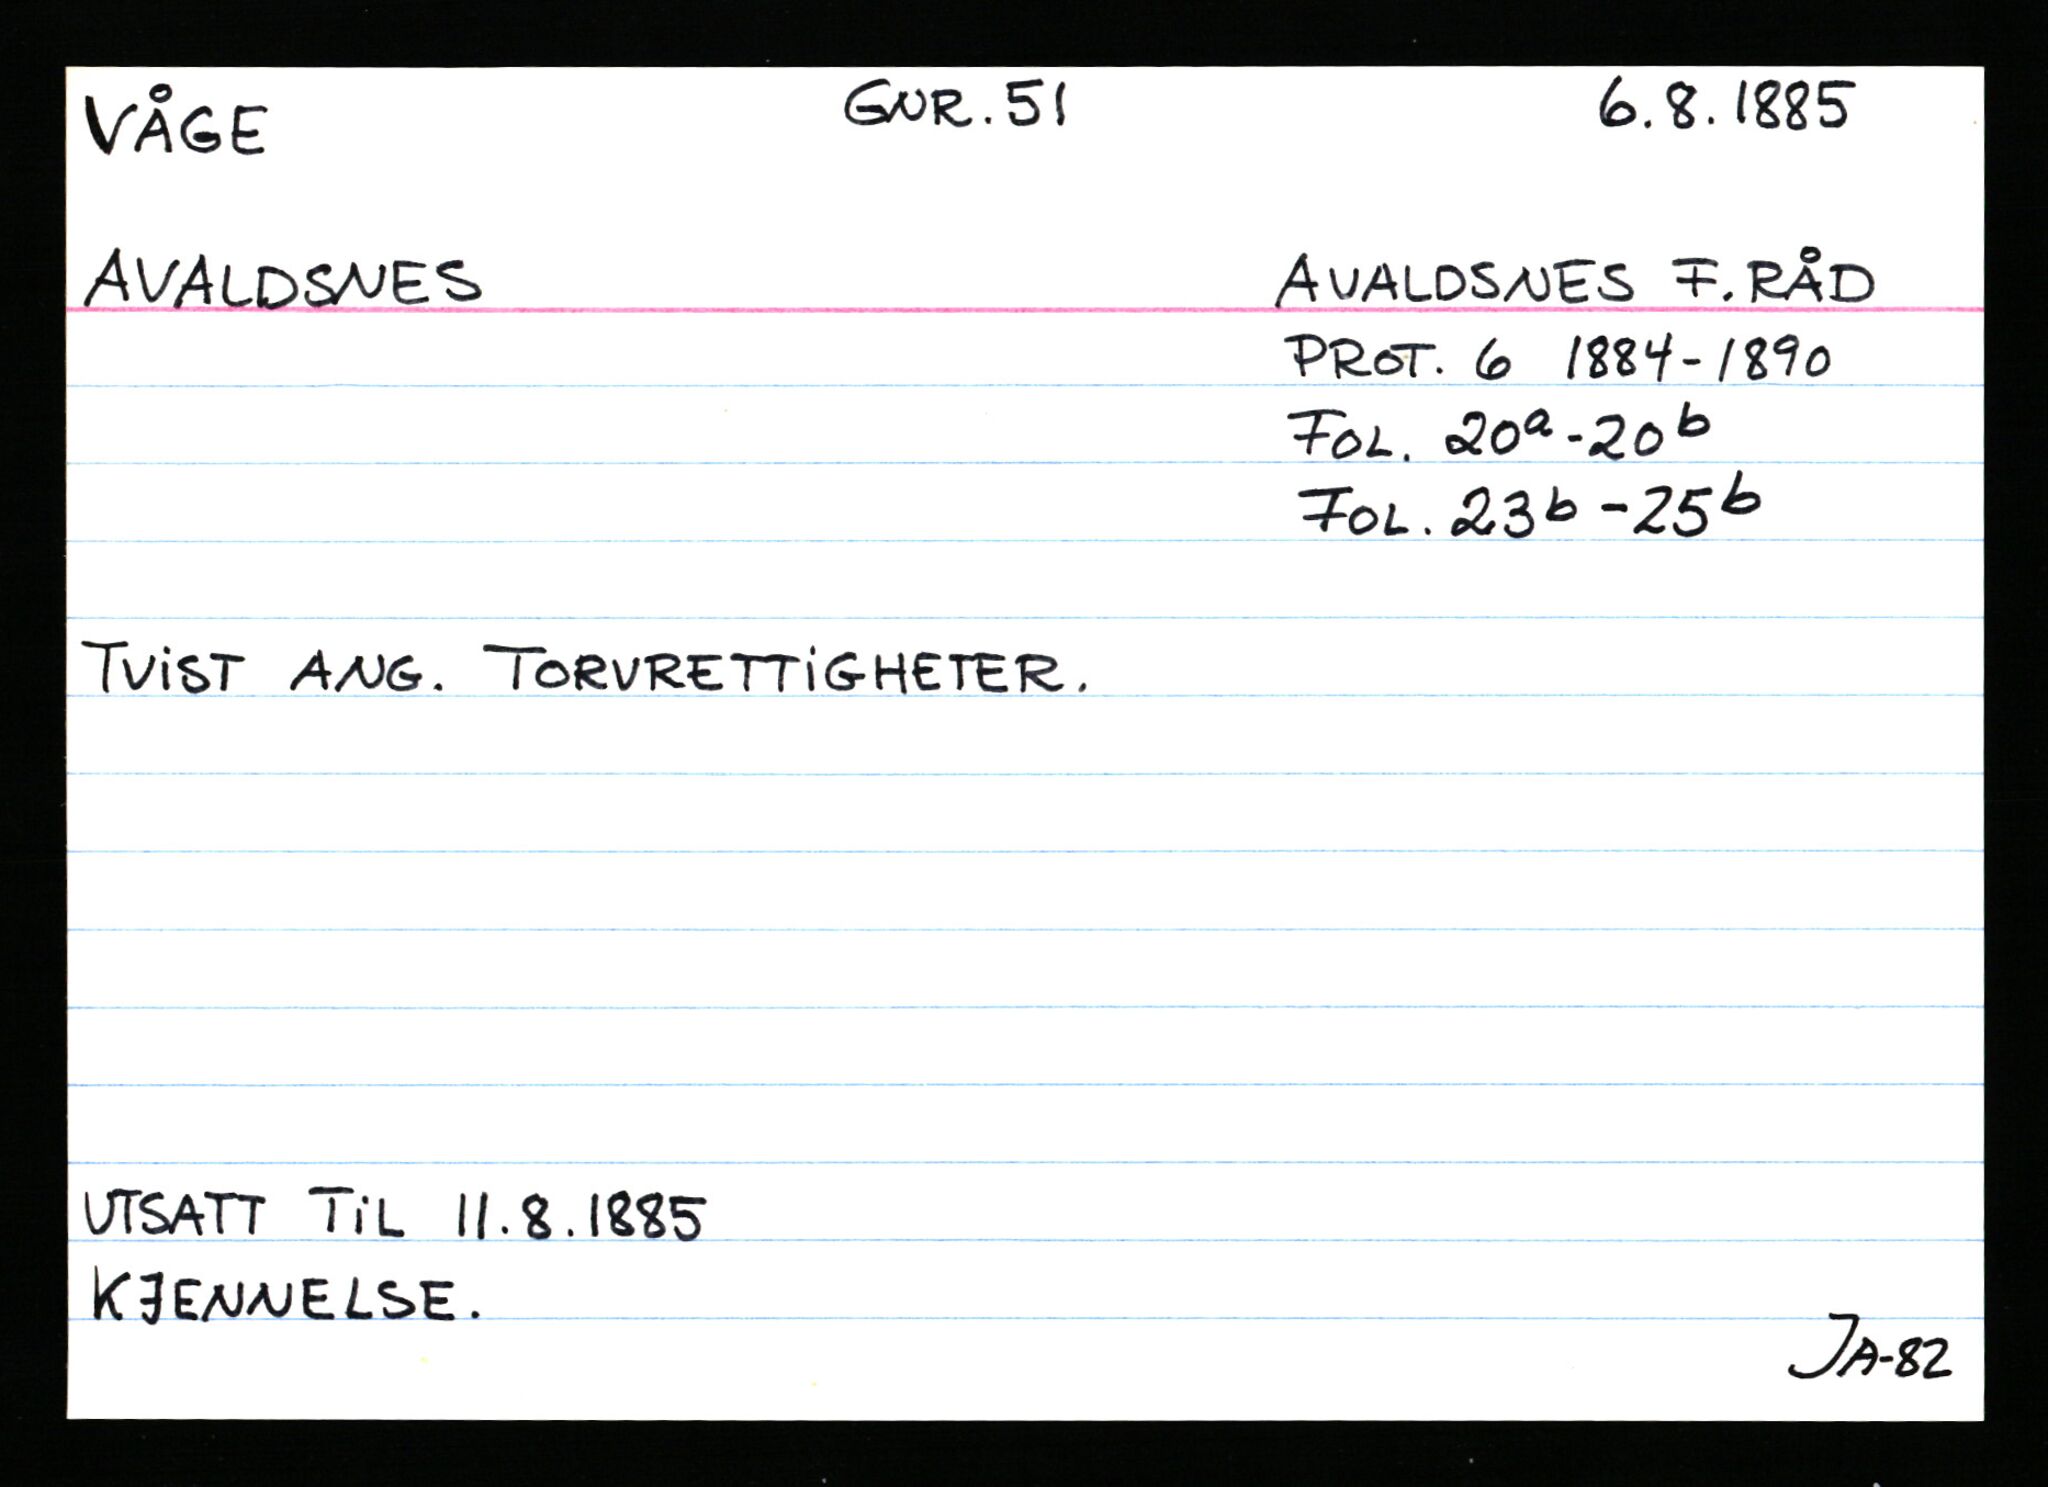 VÅGE GNR. 51 6.8.1885
AVALDSNES AVALDSNES F. RÅD
PROT. 6 1884-1890
FOL. 20a-20b
FOL. 23b-25b
TViST ANG. TORVRETTiGHETER.
UTSATT TiL 11.8.1885
KJENNELSE.
JA-82